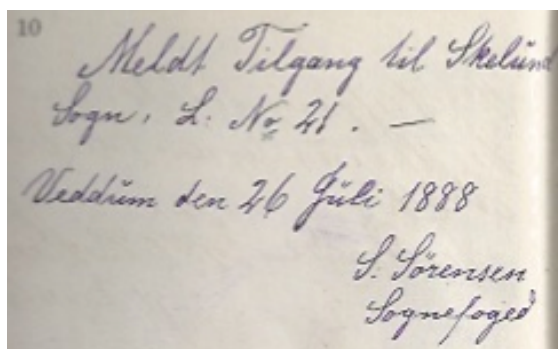 10
Meldt Tilgang til Skelund
Sogn, L. No 21. —
Veddum den 26 Juli 1888
S. Sörensen
Sognefoged